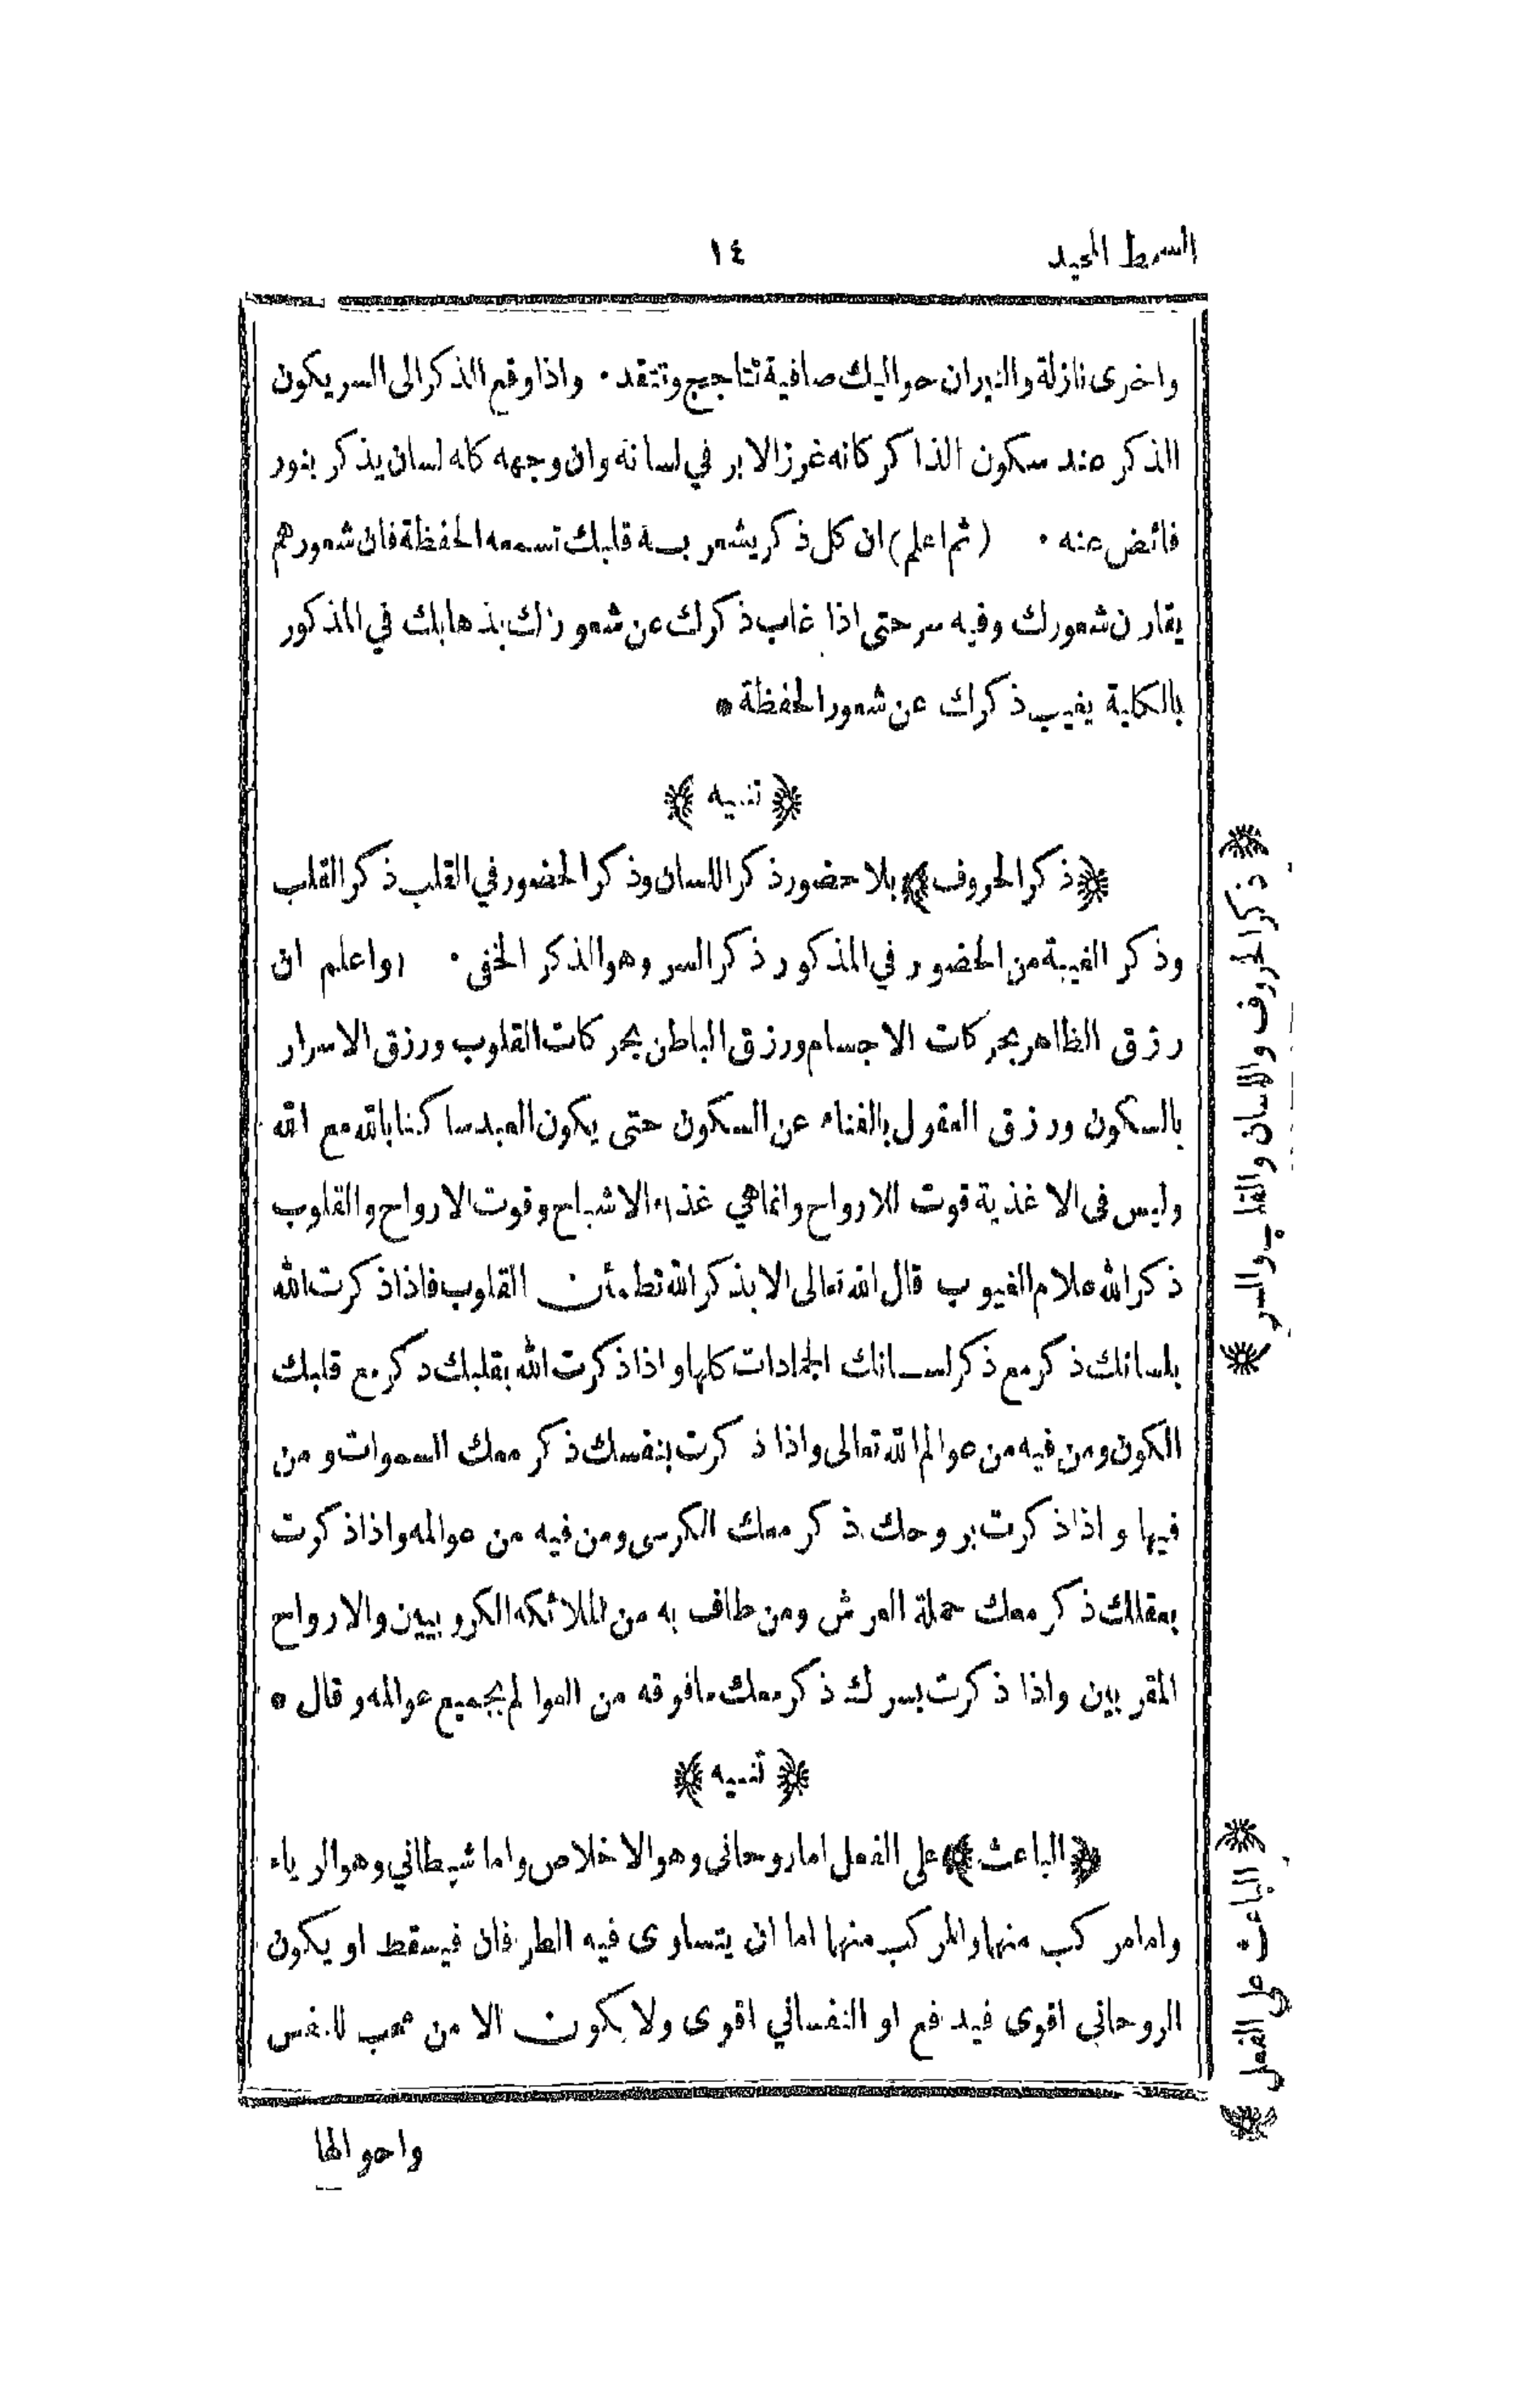 السمط المجيد ١٤
واخرى نازلة والنيران حواليك صافية تتاجج وتتقد ٠ واذا وقع الذكر الى السر يكون
الذكر عند سكون الذاكر كانه غرز الابر في لسانه وان وجهه كله لسان يذكر بنور
فائض عنه ٠ (ثم اعلم) ان كل ذكر يشعر بـه قلبك تسمعه الحفظة فان شعورهم
يقارن شعورك وفيه سر حتى اذا غاب ذكرك عن شعورك بذهابك في المذكور
بالكلية يغيب ذكرك عن شعور الحفظة *
﴿ تنبيه ﴾
﴿ ذكر الحروف ﴾ بلا حضور ذكر اللسان وذكر الحضور في القلب ذكر القلب
وذكر الغيبة من الحضور في المذكور ذكر السر وهو الذكر الخفى ٠ (واعلم ان
رزق الظاهر بحركات الاجسام ورزق الباطن بحركات القلوب ورزق الاسرار
بالسكون ورزق العقول بالفناء عن السكون حتى يكون العبد ساكنا بالله مع الله
وليس فى الاغذية قوت للارواح وانما هي غذاء الاشباح وقوت الارواح والقلوب
ذكر الله علام الغيوب قال الله تعالى الا بذكر الله تطمئن القلوب فاذا ذكرت الله
بلسانك ذكر مع ذكر لسانك الجمادات كلها واذا ذكرت الله بقلبك ذكر مع قلبك
الكون ومن فيه من عوالم الله تعالى واذا ذكرت بنفسك ذكر معك السموات ومن
فيها واذا ذكرت بروحك ذكر معك الكرسى ومن فيه من عوالمه واذا ذكرت
بعقلك ذكر معك حملة العرش ومن طاف به من الملائكه الكروبيين والارواح
المقربين واذا ذكرت بسرك ذكر معك ما فوقه من العوالم بجميع عوالمه وقال *
﴿ تنبيه ﴾
﴿ الباعث ﴾ على الفعل اما روحانى وهو الاخلاص واما شيطاني وهو الرياء
واما مركب منهما والمركب منهما اما ان يتساوى فيه الطرفان فيسقط او يكون
الروحاني اقوى فيدفع او النفساني اقوى ولا يكون الا من محب للنفس
واحوالها
ذكر الحروف واللسان والقلب والسر
الباعث على الفعل